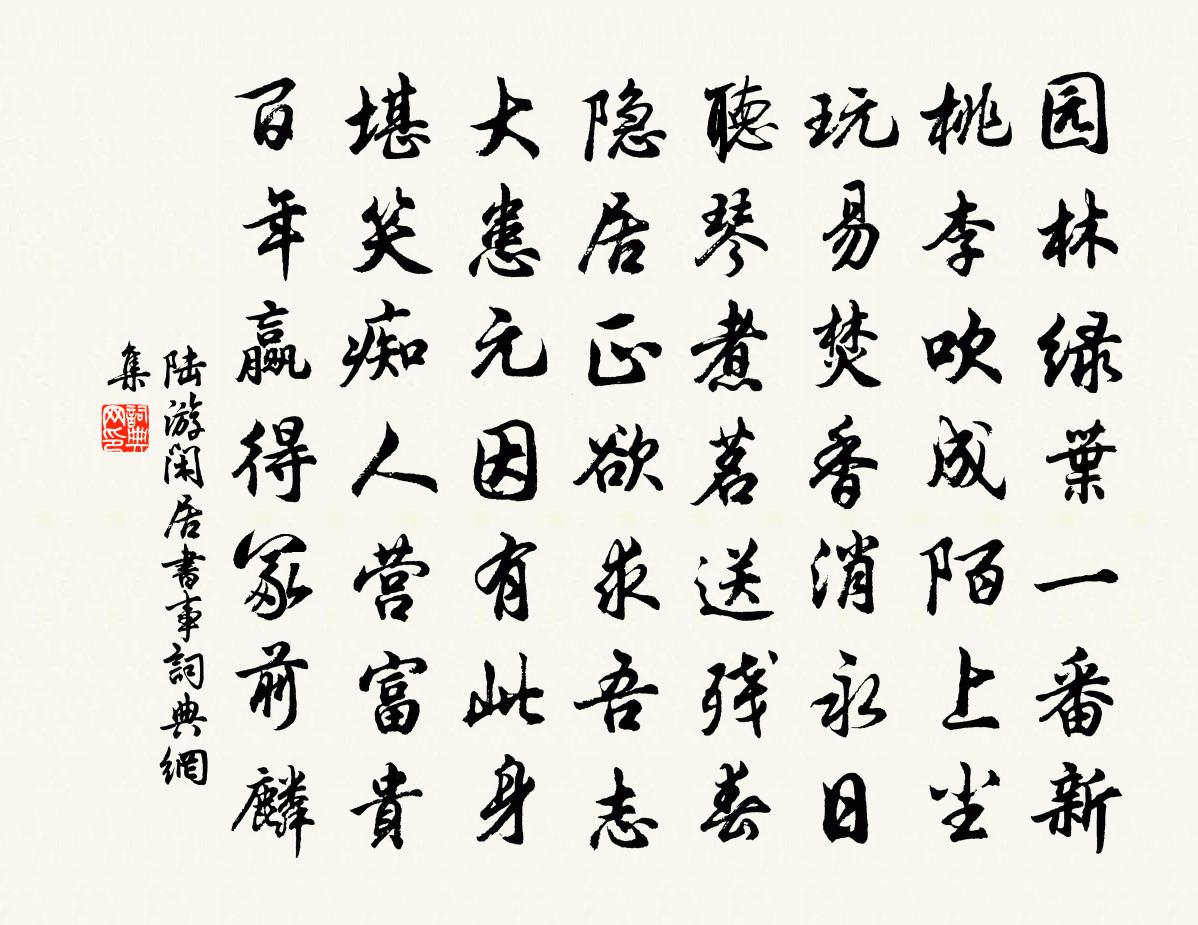 园林绿葉一番新
桃李吹成陌上尘
玩易焚香消永日
聽琴煮茗送残春
隐居正欲求吾志
大患元因有此身
堪笑痴人营富貴
百年赢得冢前麟
陆游闲居書事詞典網
集
詞典网印